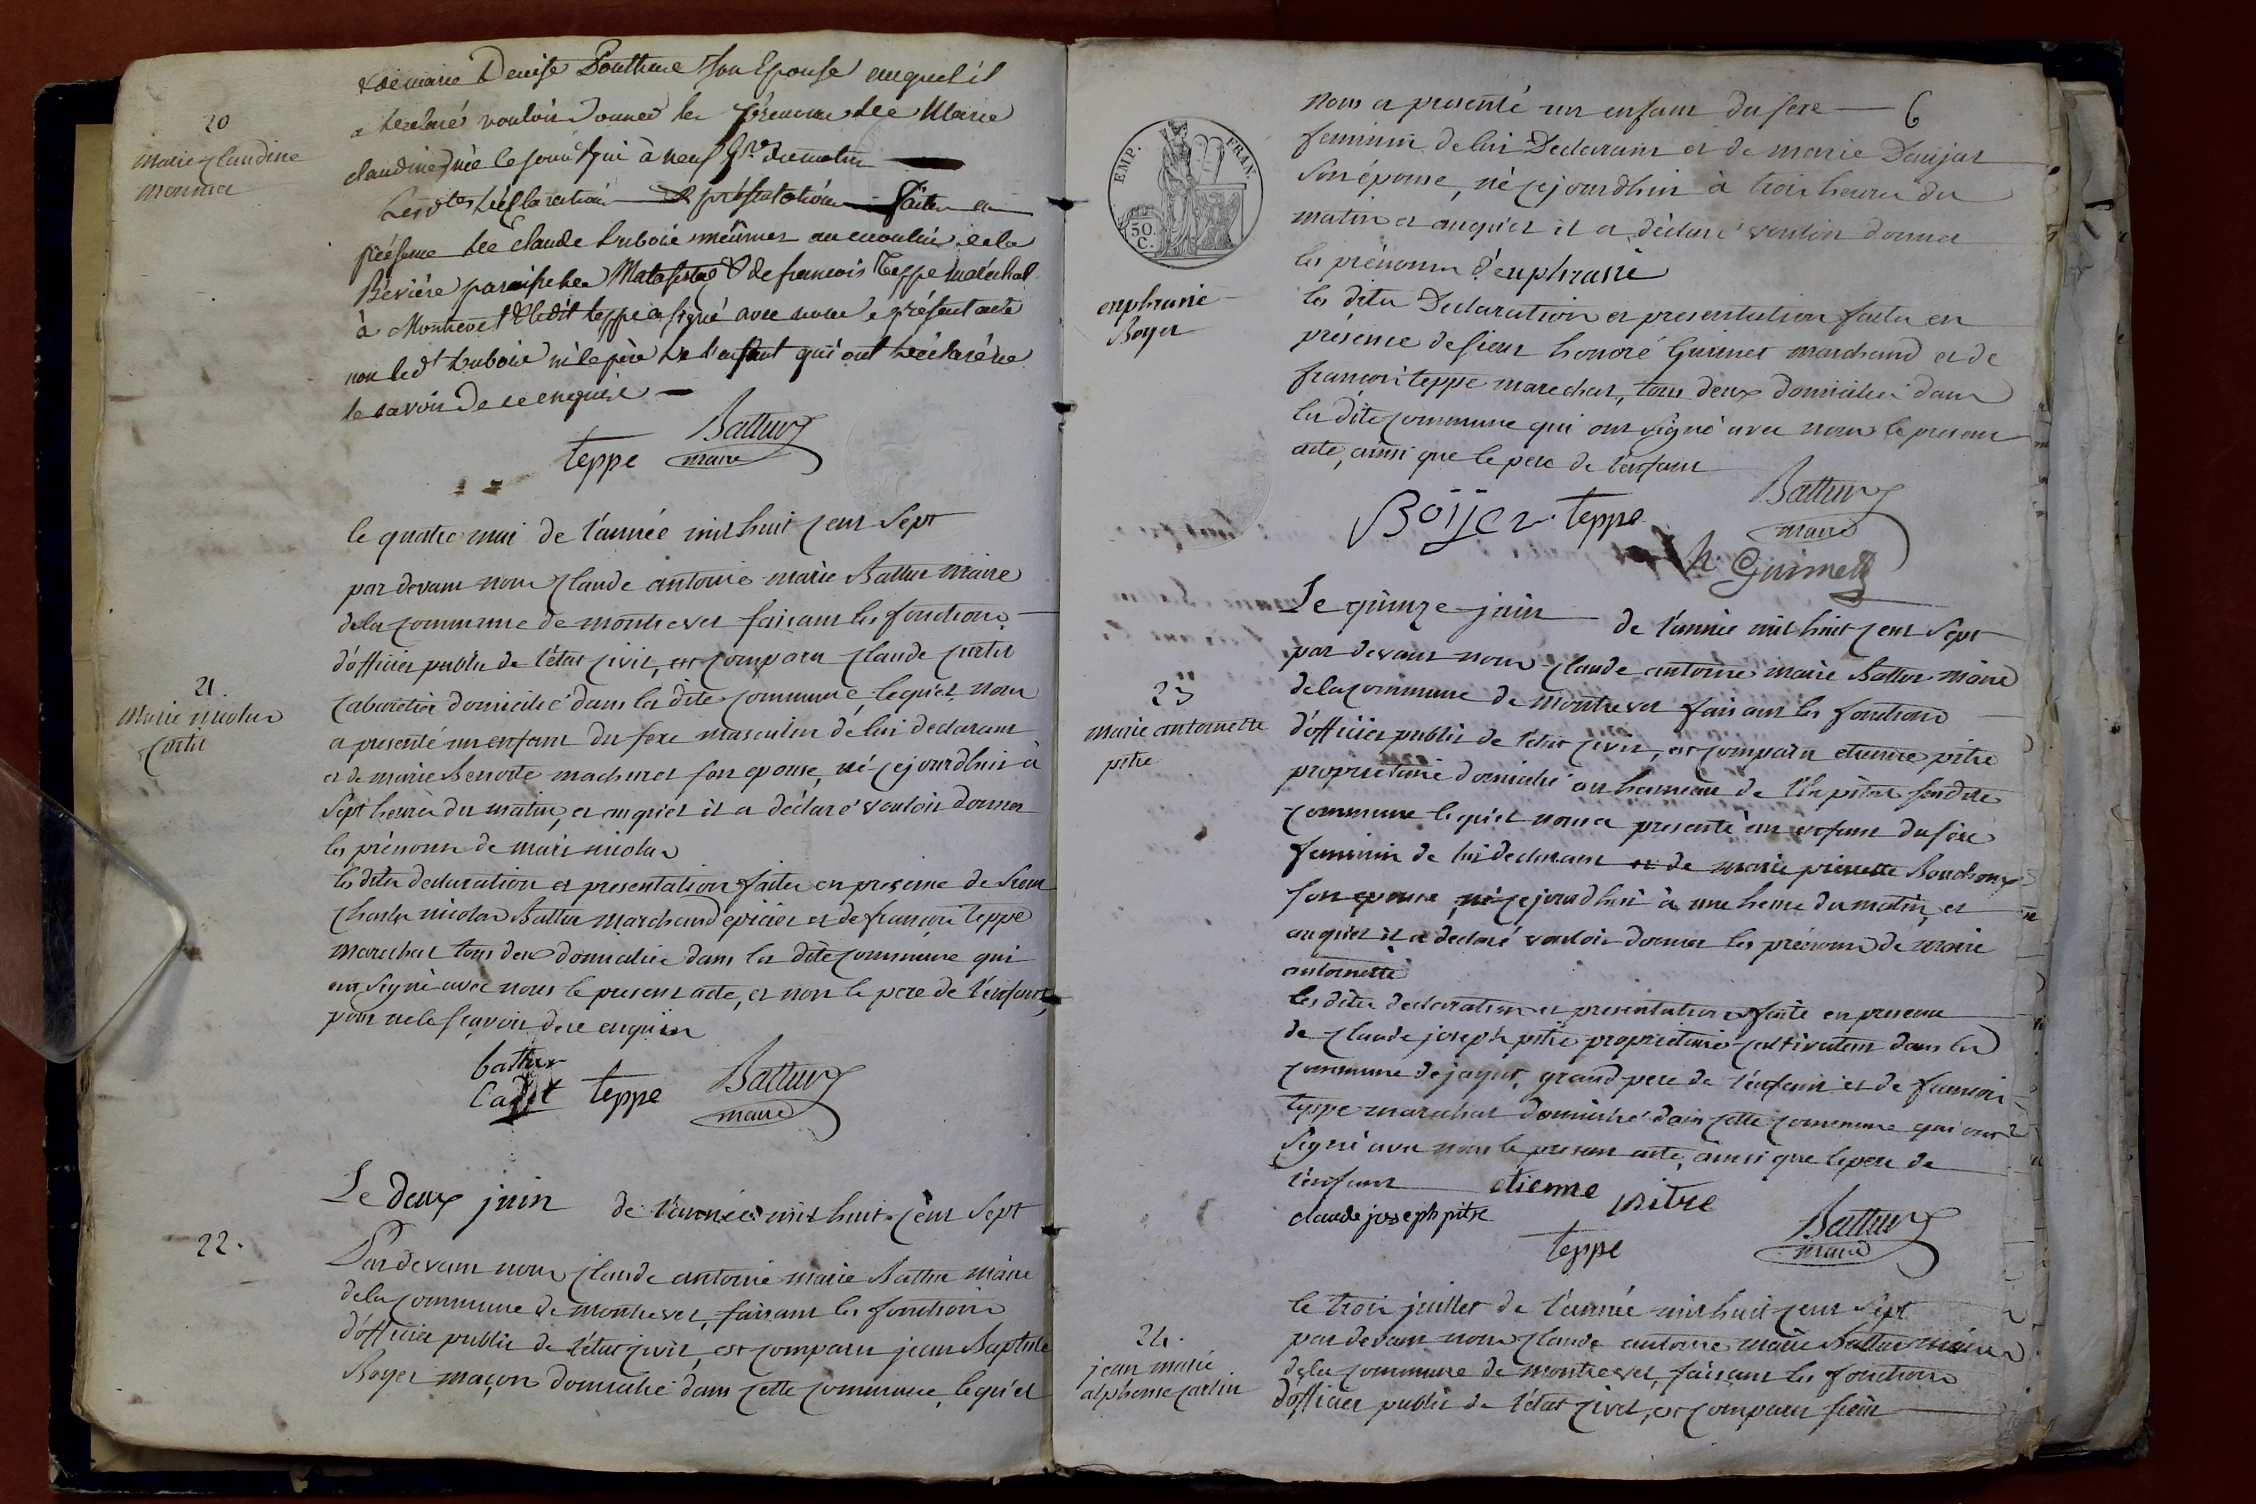 20
Marie Claudine
Monnier
& de marie Denise Pouthme son Epouse auquel il
a déclaré vouloir donner les prénoms de Marie
claudine, née le jourd'hui à neuf h.res du matin
Les d.tes déclaration & présentation faites en
présence de Claude Duboie meûnier au moulin de la
Bévière paroisse de Malafretaz & de francois Teppe maréchal
à Montrevel & le dit teppe a signé avec nous le présent acte
non le dt Duboie ni le père de l'enfant qui ont déclaré ne
le savoir de ce enquis
teppe Battur
maire
le quatre mai de l'année mil huit cent sept
21.
Marie nicolas
Curtis
par devant nous Claude antoine marie Battur maire
de la commune de montrevel faisant les fonctions
d'officier public de l'état civil, est comparu Claude
cabaretier domicilié dans la dite commune, lequel nous
a presenté un enfant du sexe masculin de lui declarant
et de marie Benoite son epouse, né cejourdhui à
sept heures du matin, et auquel il a déclaré vouloir donner
les prénoms de marie nicolas
les dites declaration et presentation faites en presence de sieur
Charles nicolas Battur marchand epicier et de francois teppe
marechal tous deux domiciliés dans la dite commune qui
ont signé avec nous le present acte, et non le pere de l'enfant,
pour ne le sçavoir de ce enquis
battur
Cadet teppe Battur
maire
Le deux juin de l'année mil huit cent sept
22.
Par devant nous Claude antoine marie Battur maire
de la commune de montrevel, faisant les fonctions
d'officier public de l'état civil, est comparu jean Baptiste
Boyer maçon domicilié dans cette commune, lequel
6
nous a presenté un enfant du sexe
feminin de lui Declarant et de marie Daujat
son épouse, né cejourdhui à trois heures du
matin et auquel il a déclaré vouloir donner
les prénoms d'euphrasie
EMP. FRAN.
50
C.
euphrasie
Boyer
les dites Declaration et presentation faites en
présence de sieur honoré Guinet marchand et de
francois teppe marechal, tous deux domiciliés dans
la dite commune qui ont signé avec nous le present
acte, ainsi que le pere de l'enfant
Boijer teppe Battur
maire
h Guinet
Le quinze juin de l'année mil huit cent sept
23
marie antoinette
pitre
par devant nous Claude antoine marie Battur maire
de la commune de montrevel faisant les fonctions
d'officier public de l'état civil, est comparu etienne pitre
proprietaire domicilié au hameau de l'hôpital sur dite
commune lequel nous a presenté un enfant du sexe
feminin de lui declarant et de marie pierrette
son epouse, né cejourdhui à une heure du matin, et
auquel il a declaré vouloir donner les prénoms de marie
antoinette
les dites declaration et presentation faite en presence
de Claude joseph pitre proprietaire cultivateur dans la
commune de jayat, grand pere de l'enfant et de francois
teppe marechal domicilié dans cette commune qui ont
signé avec nous le present acte, ainsi que le pere de
l'enfant etienne pitre
claude joseph pitre
teppe Battur
maire
24.
jean marie
alphonse Carlin
le trois juillet de l'année mil huit cent sept
par devant nous Claude antoine marie Battur maire
de la commune de montrevel, faisant les fonctions
d'officier public de l'état civil, est comparu sieur